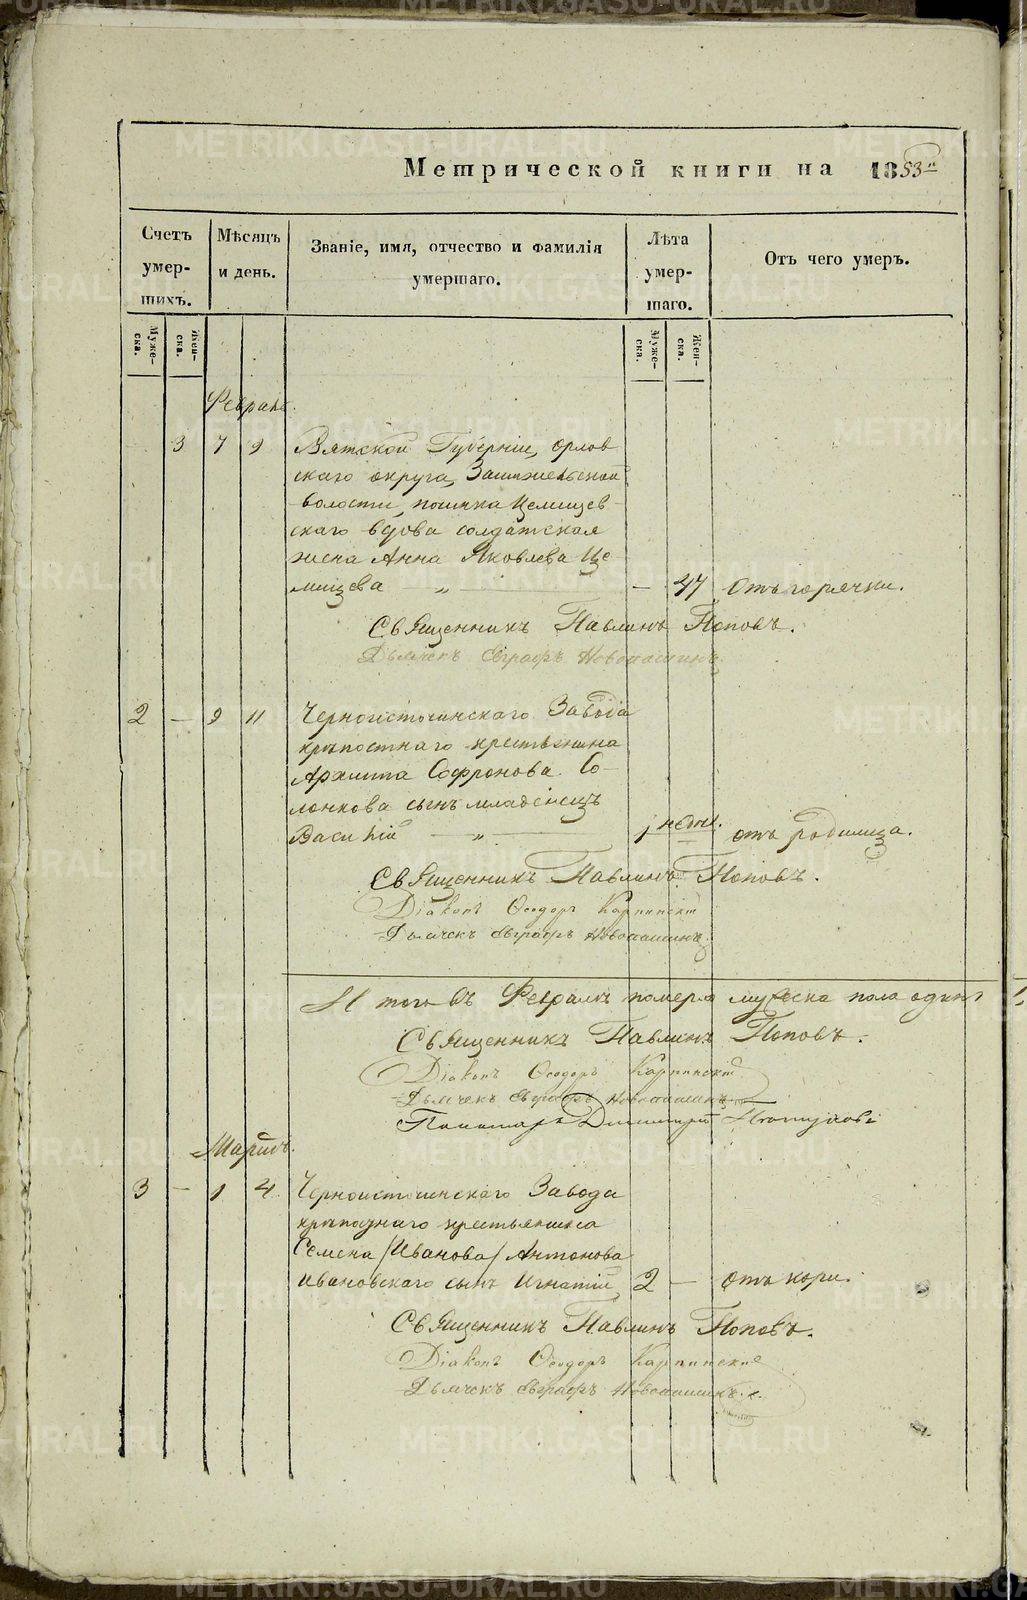 Метрической книги на 1853й
Счетъ умер-шихъ.
Мѣсяцъ и день.
Званіе, имя, отчество и фамилія умершаго.
Лѣта умер-шаго.
Отъ чего умеръ.
Муже-ска.
Жен-ска.
Муже-ска.
Жен-ска.
Февраль.
3 7 9 Вятской Губерніи, Орлов
скаго округа,
волости, починка Целищев-
скаго вдова солдатская
жена Анна Яковлева Це-
лищева „ — 47 Отъ горячки.
Священникъ Павлинъ Поповъ.
Дьячекъ Евграфъ Новопашинъ.
2 — 9 11 Черноисточинскаго Завода
крѣпостнаго крестьянина
Архипа Софронова Со-
лонкова сынъ младенецъ
Василій „ 1 недѣл. отъ родимца.
Священникъ Павлинъ Поповъ.
Діаконъ Ѳеодоръ Карпинскій
Дьячекъ Евграфъ Новопашинъ.
Итого въ Февралѣ померло мужеска пола одинъ 1,
Священникъ Павлинъ Поповъ.
Діаконъ Ѳеодоръ Карпинскій
Дьячекъ Евграфъ Новопашинъ
Пономарь Димитрій
Мартъ.
3 — 1 4 Черноисточинскаго Завода
крѣпоснаго крестьянина
Семена /Иванова/ Антонова
Ивановскаго сынъ Игнатій, 2 — Отъ кори.
Священникъ Павлинъ Поповъ.
Діаконъ Ѳеодоръ Карпинскій
Дьячекъ Евграфъ Новопашинъ.
METRIKI.GASO-URAL.RU